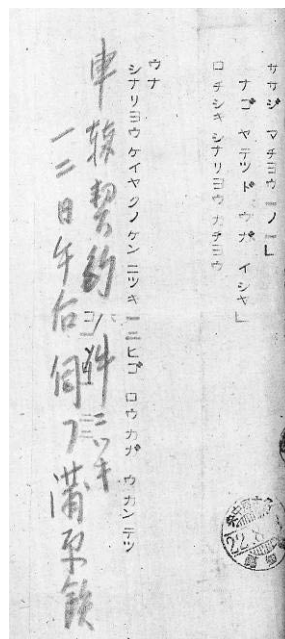 ササジ マチヨウ 一ノ一」
ナゴ ヤテツドウガ イシヤ」
ロチシキ シナリヨウ カチヨウ
ウナ
シナリヨウ ケイヤクノケンニツキ 一ニヒゴ ロウカガ ウカンテツ
車輌契約ノ件ニツキ
一二日午后伺フ蒲原鉄